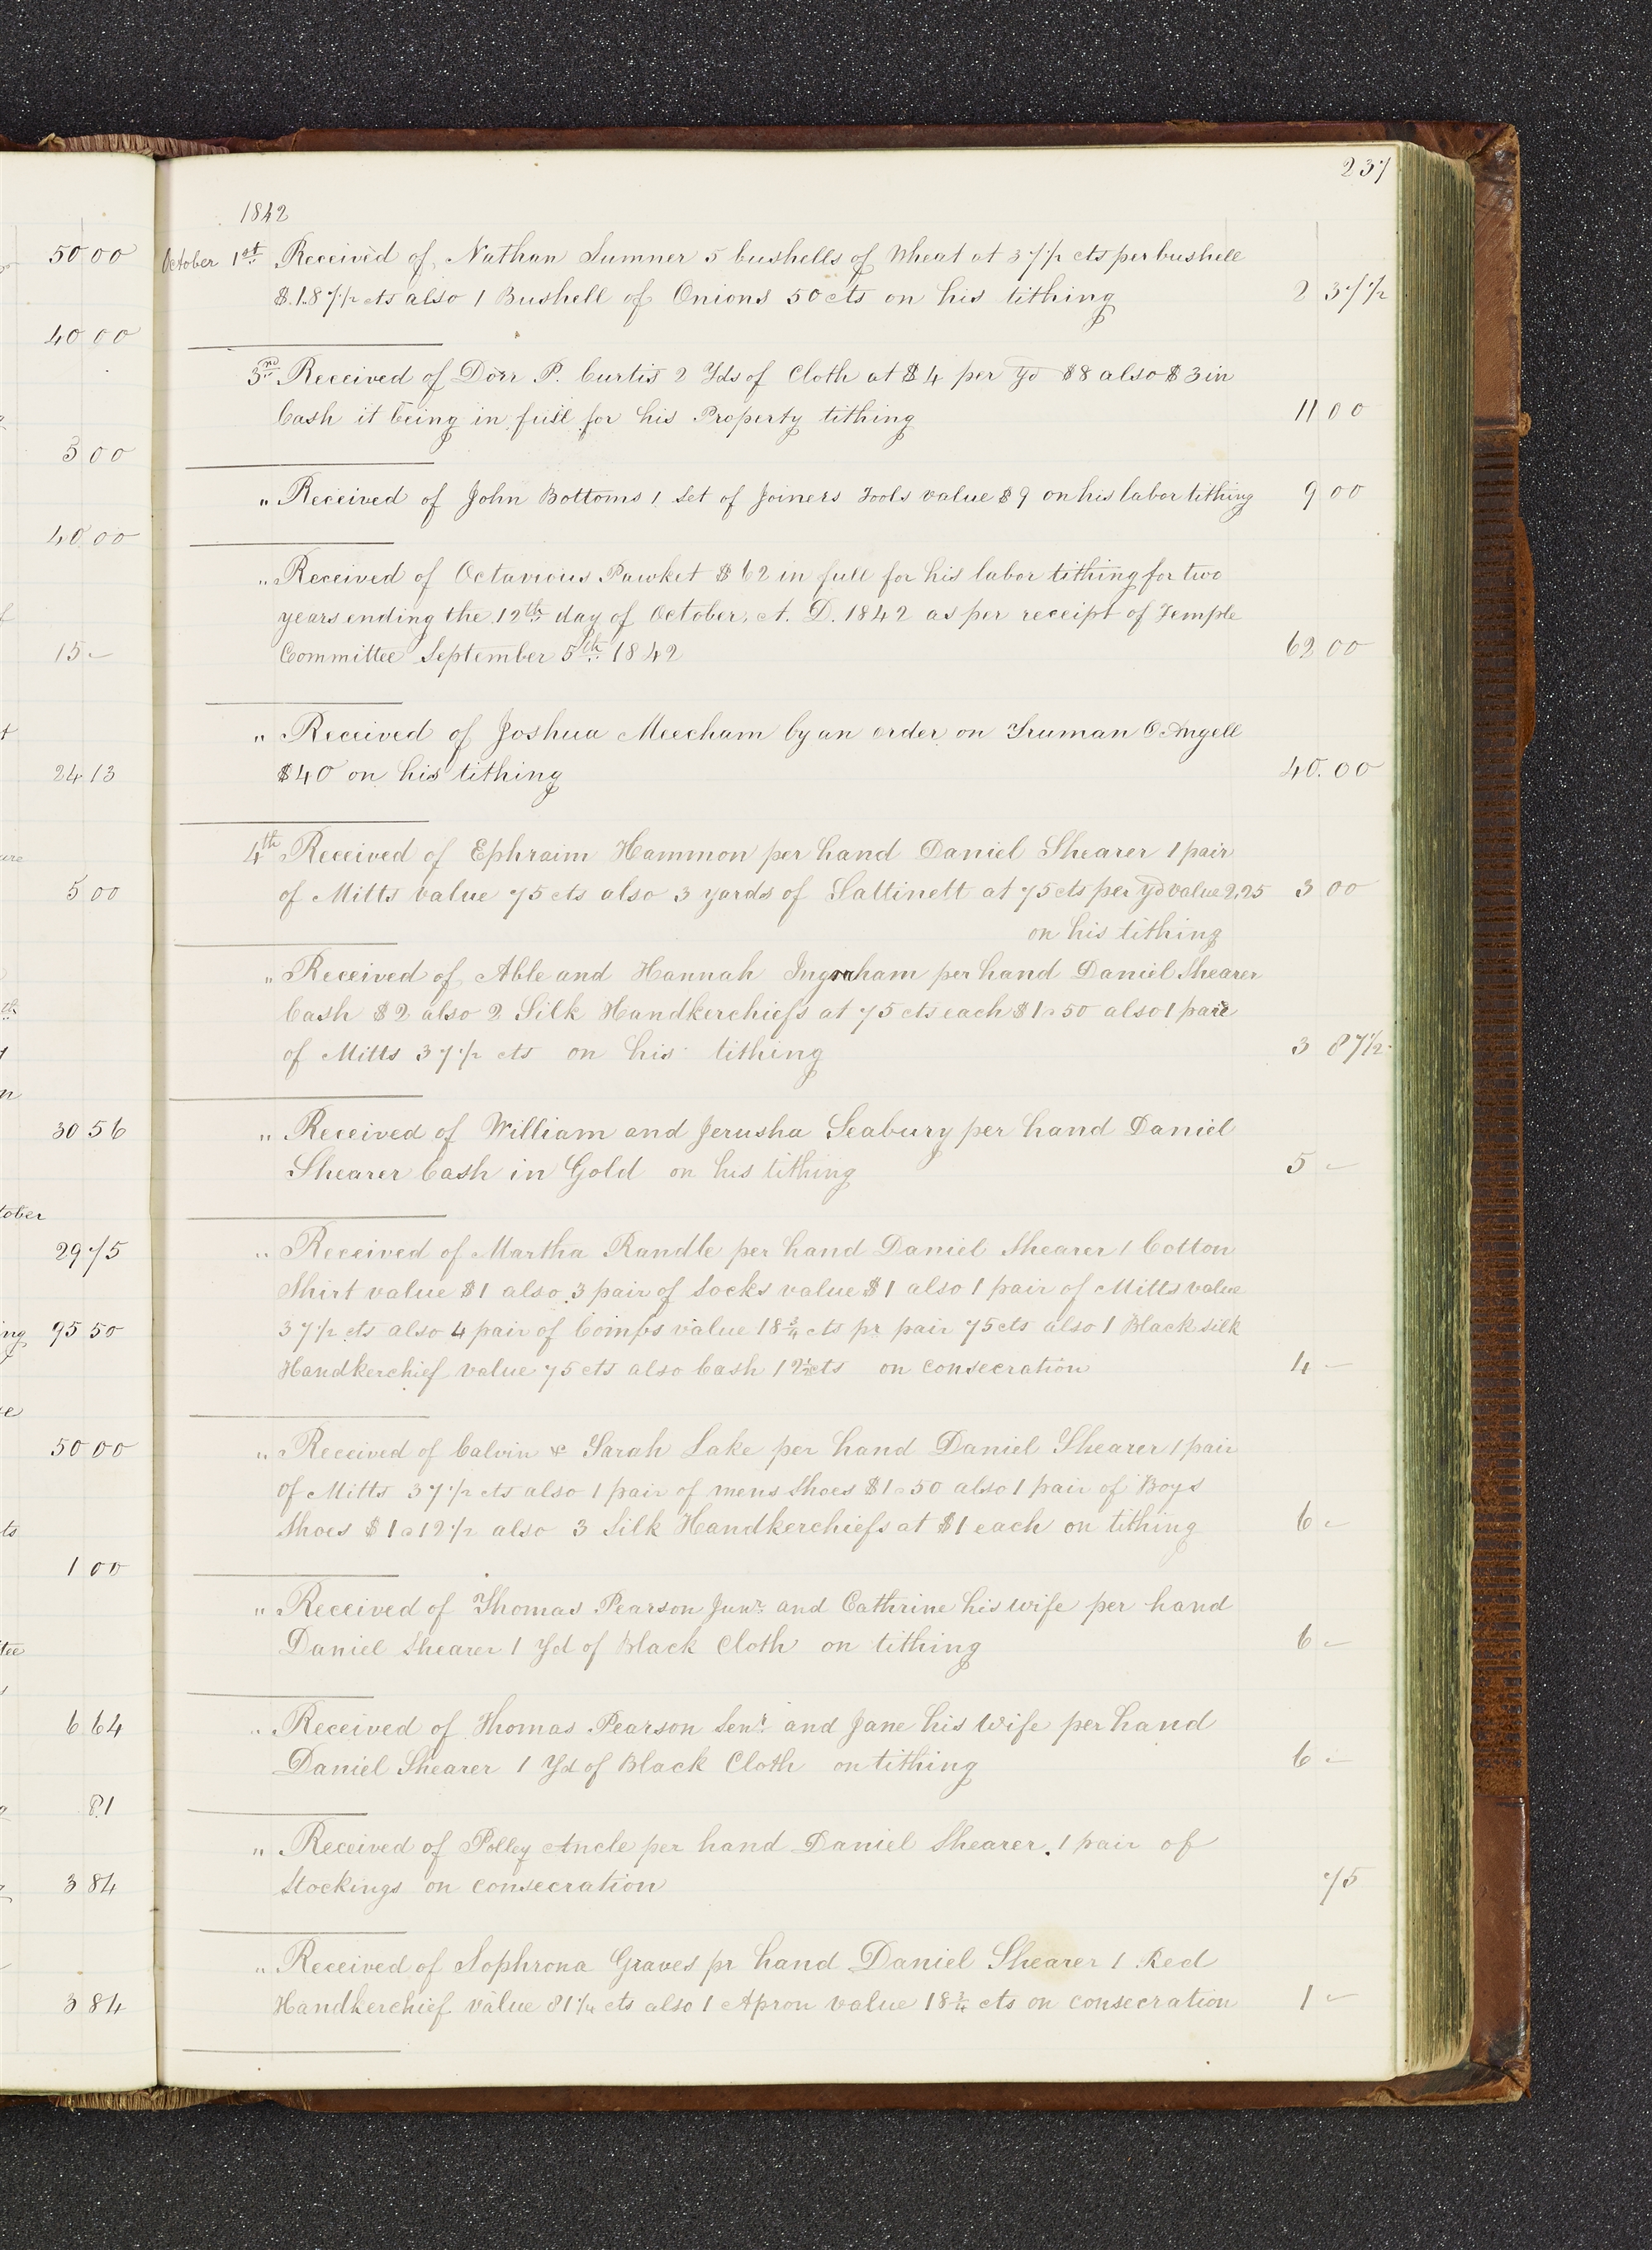 237
1842
October 1st Received of Nathan Sumner 5 bushells of Wheat at 37 1/2 cts per bushell
$1.87 1/2 cts also 1 Bushell of Onions 50 cts on his tithing 2 37 1/2
3rd Received of Dorr P. Curtis 2 Yds of Cloth at $4 per yd $8 also $3 in
Cash it being in full for his Property tithing 11 00
" Received of John Bottoms 1 Set of Joiners Tools value $9 on his labor tithing 9 00
" Received of Octavious Pawket $62 in full for his labor tithing for two
years ending the 12th day of October, A. D. 1842 as per receipt of Temple
Committee September 5th 1842 62 00
" Received of Joshua Meecham by an order on Truman O. Angell
$40 on his tithing 40.00
4th Received of Ephraim Hammon per hand Daniel Shearer 1 pair
of Mitts value 75 cts also 3 yards of Sattinett at 75 cts per yd value 2,25 3 00
on his tithing
" Received of Able and Hannah Ingraham per hand Daniel Shearer
Cash $2 also 2 Silk Handkerchiefs at 75 cts each $1.50 also 1 pair
of Mitts 37 1/2 cts on his tithing 3 87 1/2
" Received of William and Jerusha Seabury per hand Daniel
Shearer Cash in Gold on his tithing 5 –
" Received of Martha Randle per hand Daniel Shearer 1 Cotton
Shirt value $1 also 3 pair of Socks value $1 also 1 pair of Mitts value
37 1/2 cts also 4 pair of Combs value 18 3/4 cts pr pair 75 cts also 1 Black silk
Handkerchief value 75 cts also Cash 12 1/2 cts on consecration 4 –
" Received of Calvin & Sarah Lake per hand Daniel Shearer 1 pair
of Mitts 37 1/2 cts also 1 pair of mens Shoes $1.50 also 1 pair of Boys
Shoes $1.12 1/2 also 3 Silk Handkerchiefs at $1 each on tithing 6 –
" Received of Thomas Pearson Junr. and Cathrine his wife per hand
Daniel Shearer 1 Yd of Black Cloth on tithing 6 –
" Received of Thomas Pearson Senr. and Jane his wife per hand
Daniel Shearer 1 Yd of Black Cloth on tithing 6 –
" Received of Polley Ancle per hand Daniel Shearer. 1 pair of
Stockings on consecration 75
" Received of Sophrona Graves pr hand Daniel Shearer 1 Red
Handkerchief value 81 1/4 cts also 1 Apron value 18 3/4 cts on consecration 1 –
50 00
40 00
3 00
40 00
15 –
24 13
5 00
30 56
tober
29 75
ing 95 50
50 00
1 00
6 64
81
3 84
3 84